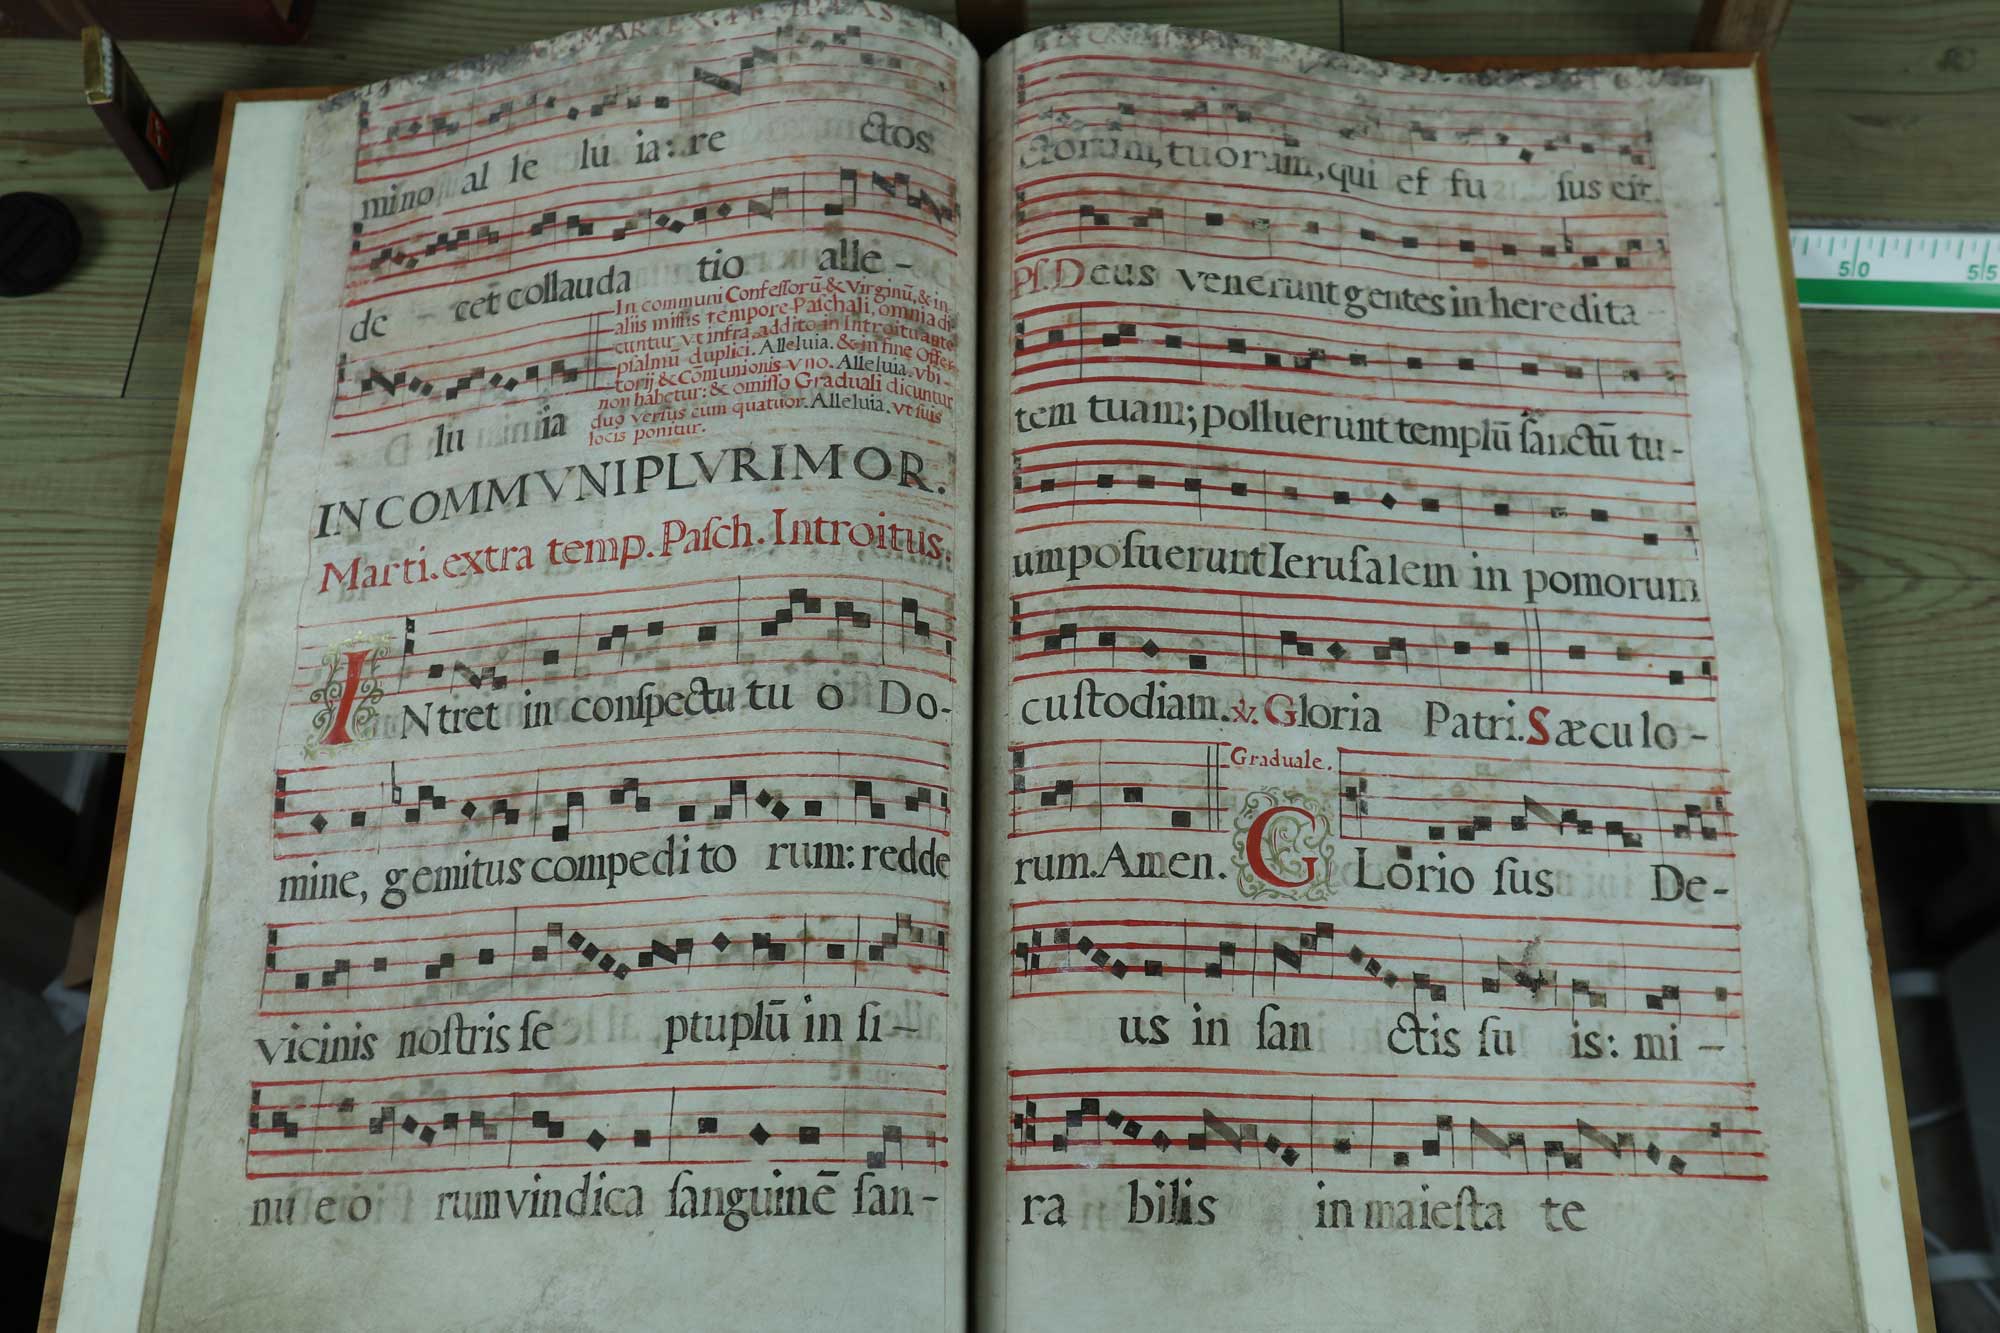 MAR. EX. TEMP. PAS.
mino al le lu ia: re ctos
de - cet collauda tio alle -
In communi Confeſſorū & Virginū, & in
aliis miſſis tempore Paſchali, omnia di
cuntur vt infra, addito in Introitu ante
pſalmū duplici. Alleluia. & in fine Offer
torij & Cōmunionis vno. Alleluia. vbi
non habetur: & omiſſo Graduali dicuntur
duo verſus cum quatuor. Alleluia. vt ſuis
locis ponitur.
lu ia
IN COMMVNI PLVRIMOR.
Marti. extra temp. Paſch. Introitus.
INtret in conſpectu tu o Do-
mine, gemitus compedi to rum: redde
vicinis noſtris ſe ptuplū in ſi -
nu e o rum vindica ſanguinē ſan -
ctorum, tuorum, qui ef fu ſus eſt.
Pſ. Deus venerunt gentes in heredita
tem tuam; polluerunt templū ſanctū tu -
um poſuerunt Ieruſalem in pomorum
cuſtodiam. ℣. Gloria Patri. Sæculo -
Graduale.
rum. Amen. GLorio ſus De -
us in ſan ctis ſu is: mi -
ra bilis in maieſta te
50 55